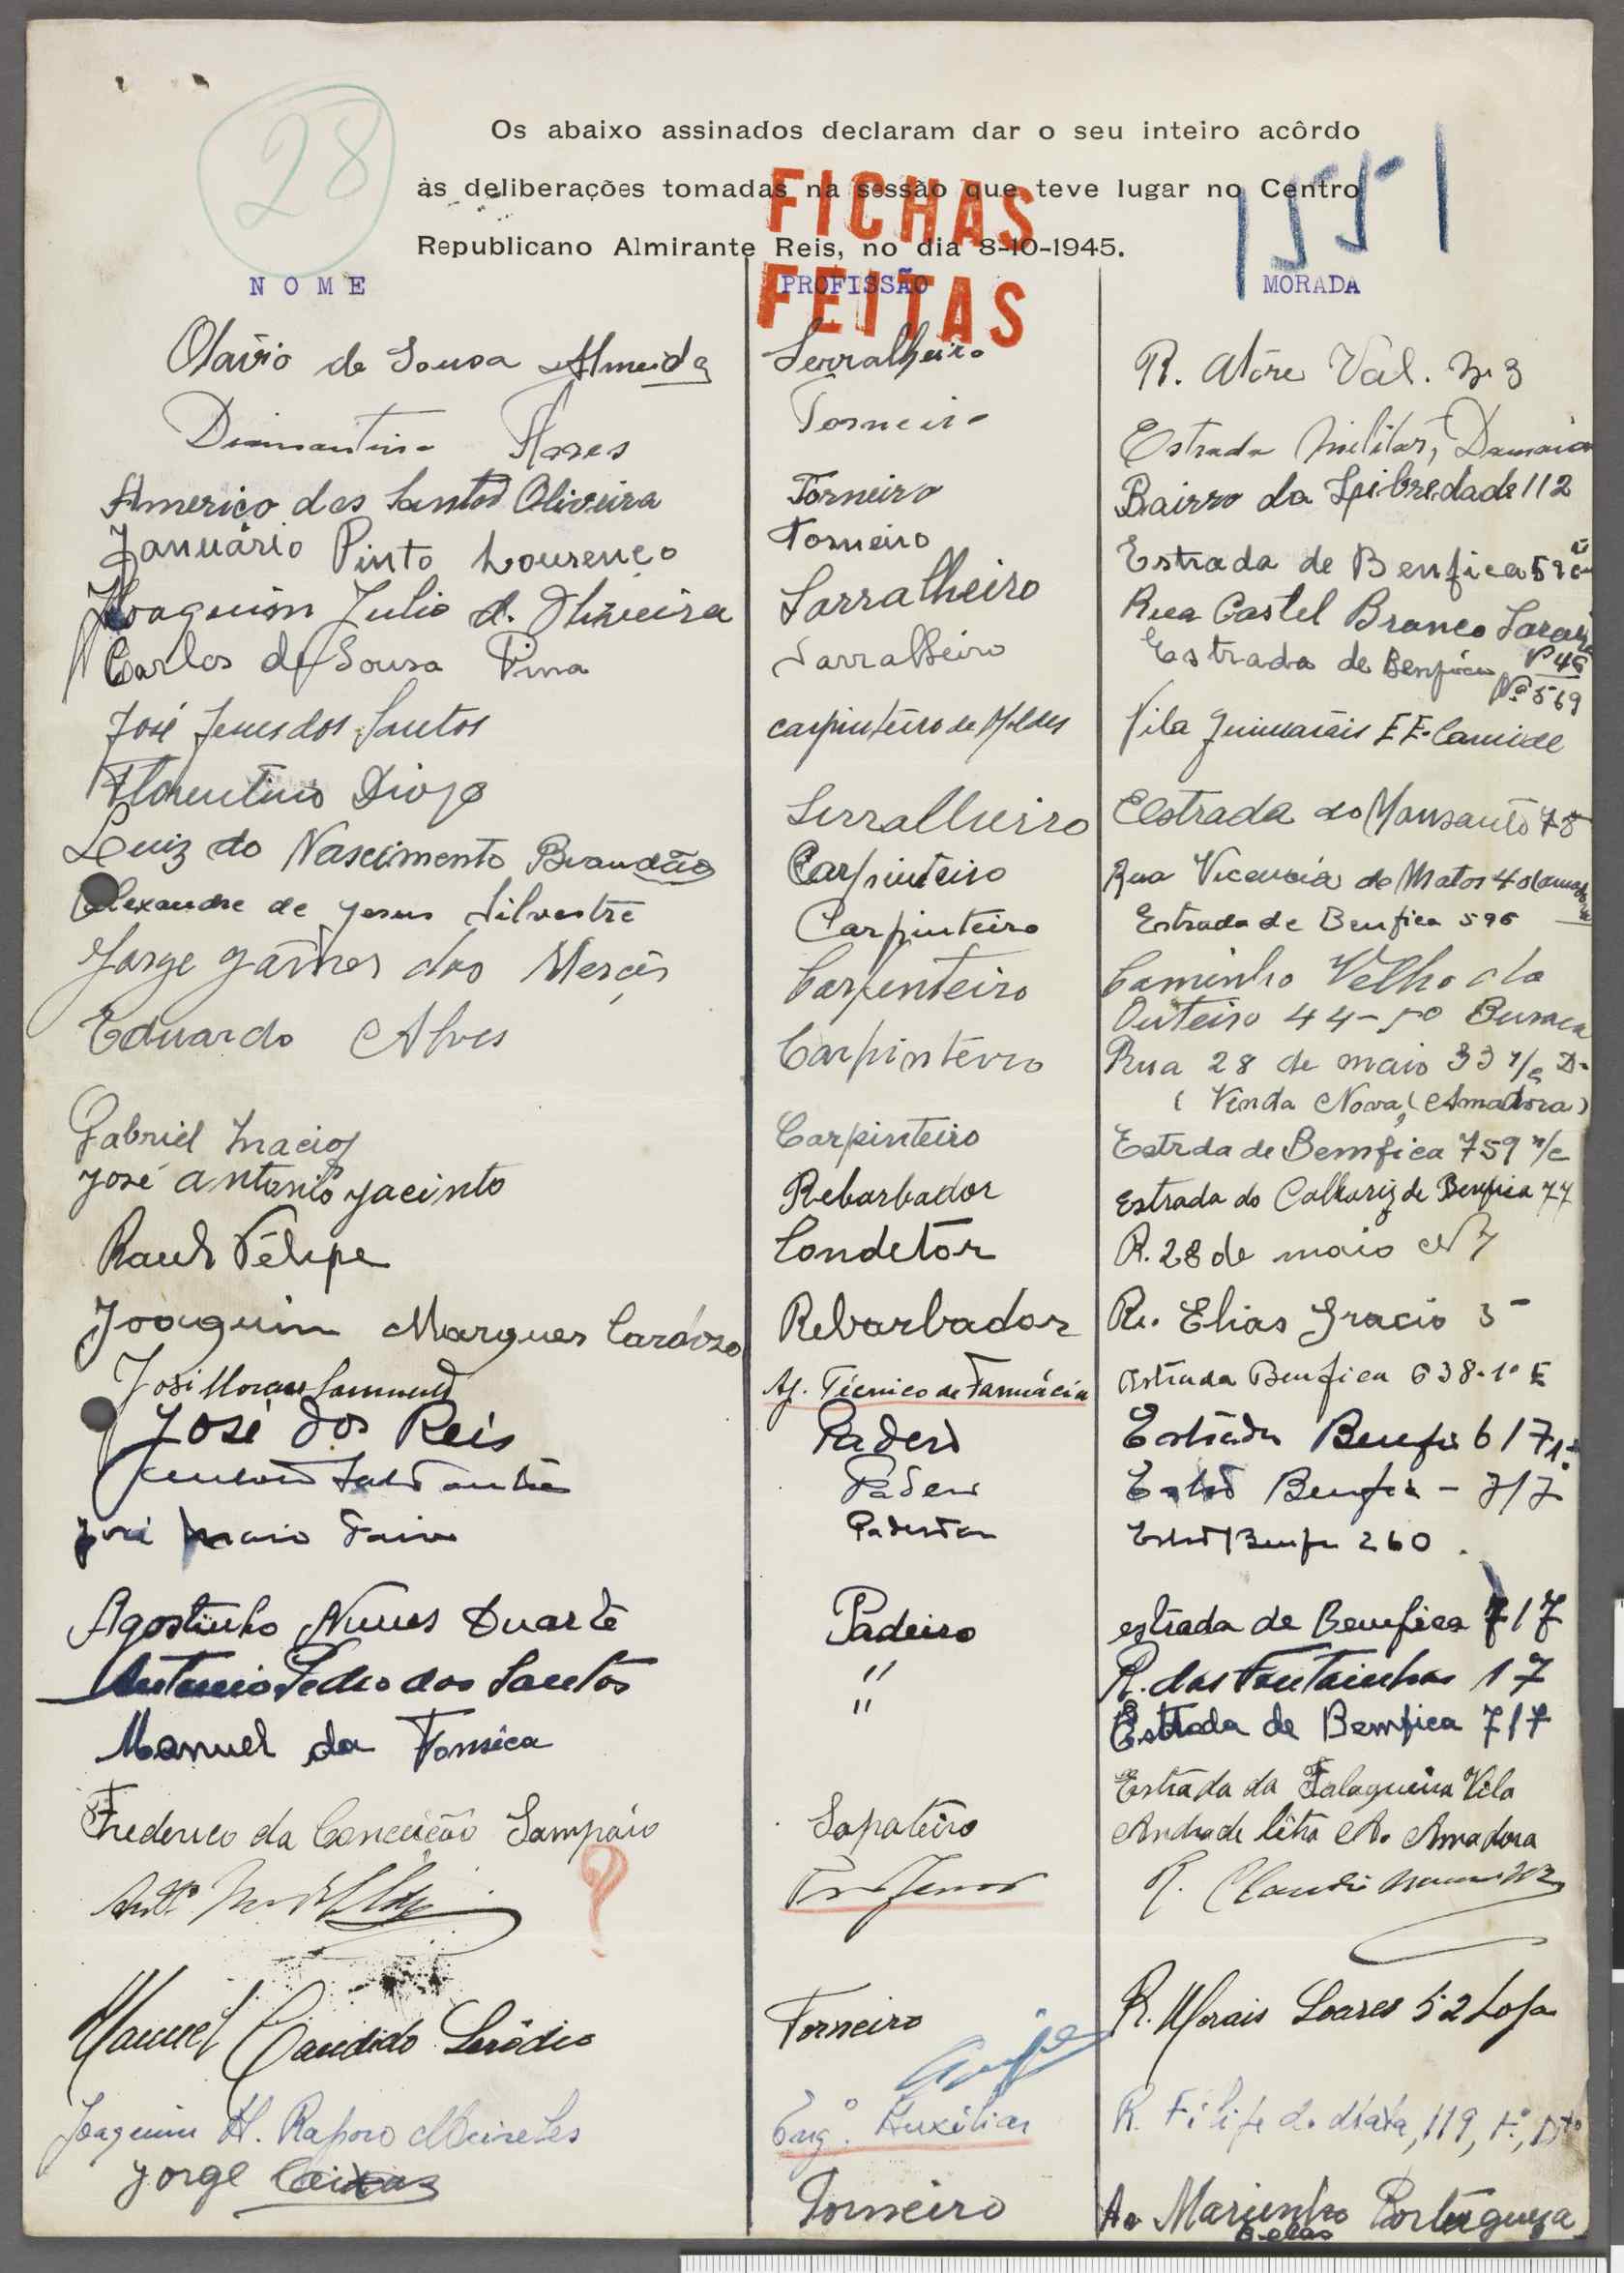 28
Os abaixo assinados declaram dar o seu inteiro acôrdo
às deliberações tomadas na sessão que teve lugar no Centro
Republicano Almirante Reis, no dia 8-10-1945.
1551
FICHAS
FEITAS
NOME PROFISSÃO MORADA
Olávio de Sousa Almeida Serralheiro R. Val. Nº 3
Diamantino Flores Torneiro Estrada Militar, Damaia
Americo dos Santos Oliveira Torneiro Bairro da Liberdade 112
Januário Pinto Lourenço Torneiro Estrada de Benfica
Joaquim Julio d. Oliveira Sarralheiro Rua Castel Branco Saraiva Nº 48
Carlos de Sousa Pina Sarralheiro Estrada de Benfica Nº 569
José Jesus dos Santos carpinteiro de Moldes Vila Guimarãis Carnide
Florentino Diogo Serralheiro Estrada do Monsanto 78
Luiz do Nascimento Brandão Carpinteiro Rua Vicencia de Matos
Alexandre de Jesus Silvestre Carpinteiro Estrada de Benfica 596
Jorge das Mercês Carpenteiro Caminho Velho do
Outeiro 44-50 Buraca
Eduardo Alves Carpinteiro Rua 28 de maio 33 r/c D.
(Venda Nova, (Amadora)
Gabriel Inacio Carpinteiro Estrda de Bemfica 759 r/c
José Antonio Jacinto Rebarbador Estrada do Calhariz de Benfica 77
Raul Félipe Condetor R. 28 de maio Nº 7
Joaquim Marques Cardoso Rebarbador R. Elias Gracio 5
José Aj. Técnico de Farmácia Estrada Benfica 638-1º E
José dos Reis Padero Estrada 617 1º
Padero 717
José Paiva 260.
Agostinho Nunes Duarte Padeiro estrada de Bemfica 717
Antonio Pedro dos Santos " R. das Fontainhas 17
Manuel da Fonseca " Estrada de Bemfica 717
Estrada da Falagueira Vila
Frederico da Conceição Sampáio Sapateiro Andrade letra A. Amadora
? Professor R. Claudio
Manuel Candido Serôdio Torneiro R. Morais Soares 52 Loja
Joaquim H. Raposo Meireles Engº. Auxiliar R. Filipe da Mata, 119, 1º, Dto
Jorge Caixas Torneiro Av Marinha Portuguesa